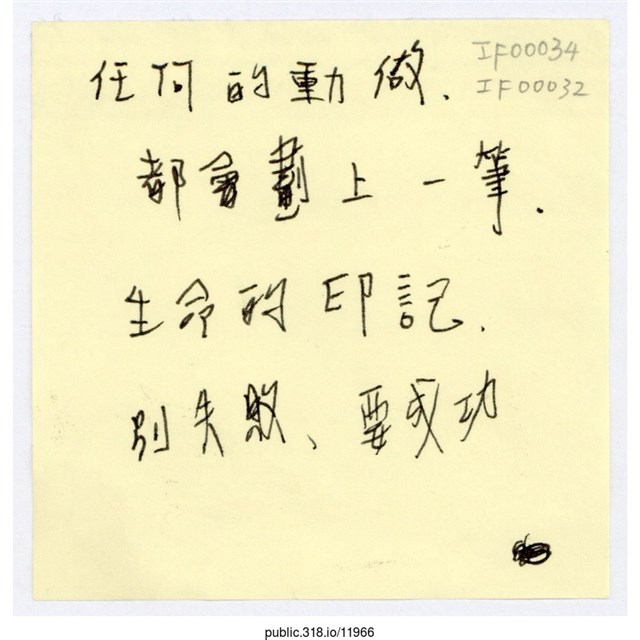 IF00034
IF00032
任何的動做.
都會劃上一筆.
生命的印記.
別失敗、要成功
public.318.io/11966